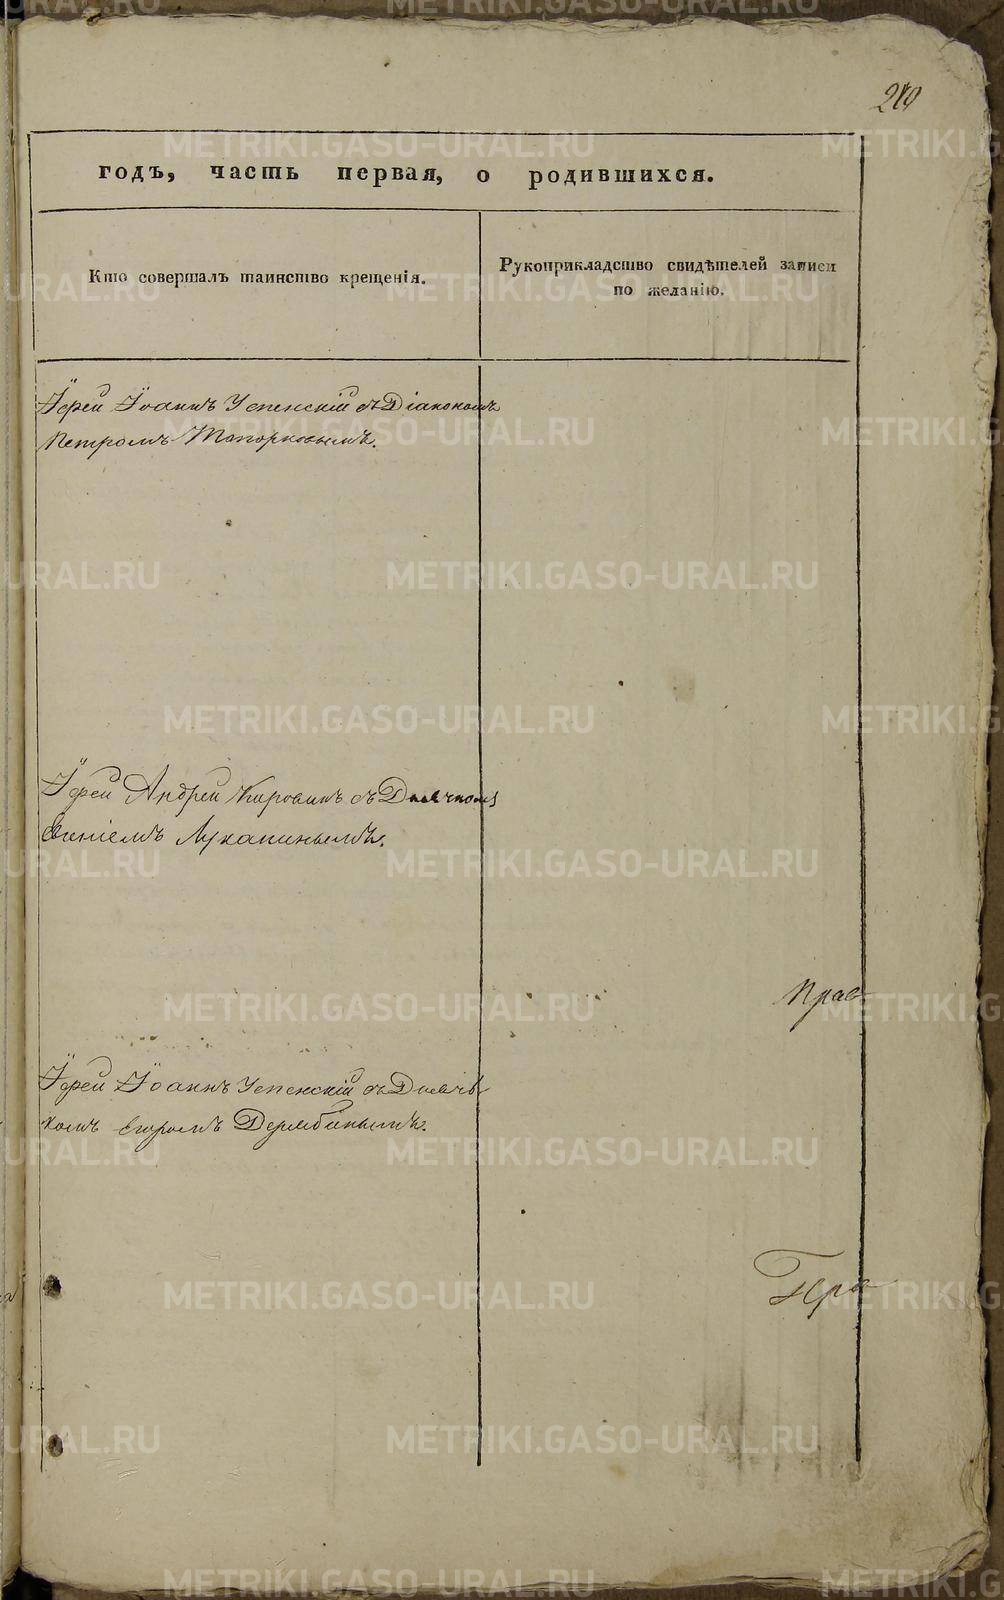 219
годъ, часть первая, о родившихся.
Кто совершалъ таинство крещенія.
Рукоприкладство свидѣтелей записи
по желанію.
Іерей Іоаннъ Успенскій съ Діакономъ
Петромъ Топорковымъ.
Іерей Андрей съ Дьячкомъ
Лукапинымъ.
Прав
Іерей Іоаннъ Успенскій съ Дьяч
комъ Егоромъ Дерябинымъ.
METRIKI.GASO-URAL.RU